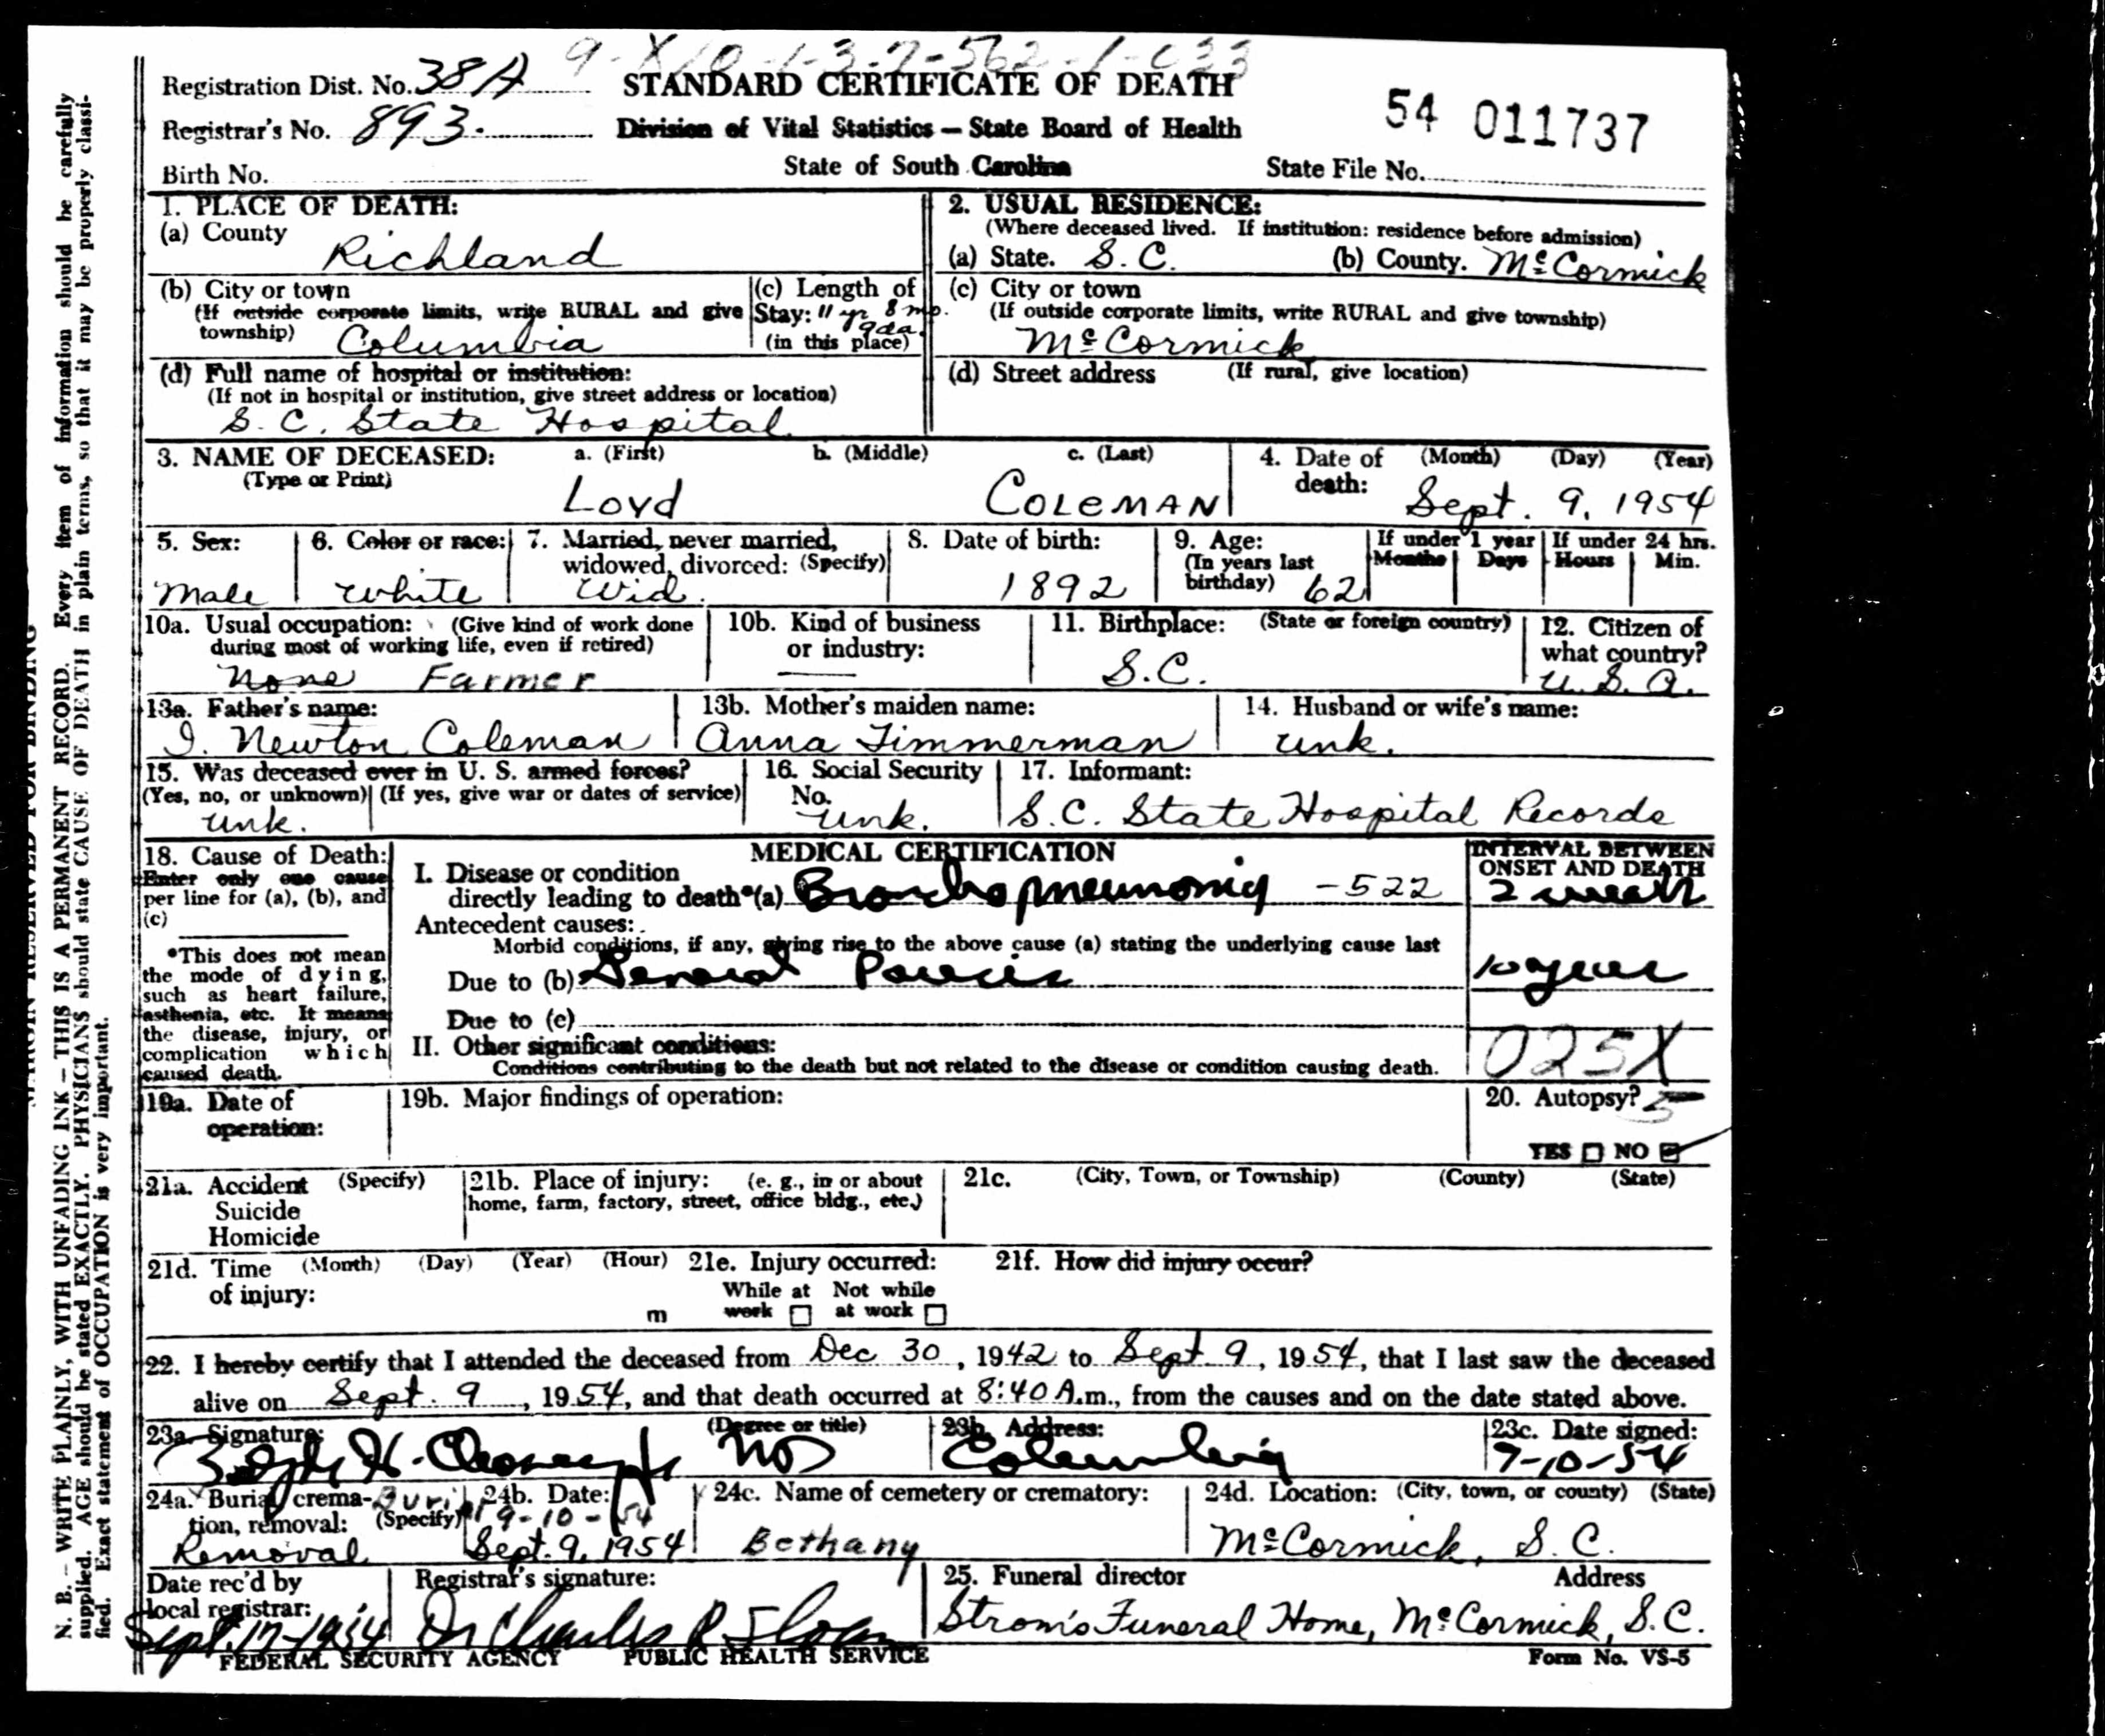 9-X10-1-3-7-562-1-033
Registration Dist. No. 38A
STANDARD CERTIFICATE OF DEATH
54 011737
Registrar's No. 893.
Division of Vital Statistics — State Board of Health
Birth No.
State of South Carolina
State File No.
1. PLACE OF DEATH:
(a) County
Richland
(b) City or town
(If outside corporate limits, write RURAL and give
township) Columbia
(c) Length of
Stay: 11 yr 8 mo.
9 da.
(in this place)
(d) Full name of hospital or institution:
(If not in hospital or institution, give street address or location)
S. C. State Hospital
2. USUAL RESIDENCE:
(Where deceased lived. If institution: residence before admission)
(a) State. S. C. (b) County. McCormick
(c) City or town
(If outside corporate limits, write RURAL and give township)
McCormick
(d) Street address (If rural, give location)
3. NAME OF DECEASED: a. (First) b. (Middle) c. (Last)
(Type or Print)
Loyd COLEMAN
4. Date of (Month) (Day) (Year)
death:
Sept. 9, 1954
5. Sex:
Male
6. Color or race:
White
7. Married, never married,
widowed, divorced: (Specify)
Wid.
8. Date of birth:
1892
9. Age:
(In years last
birthday) 62
If under 1 year
Months Days
If under 24 hrs.
Hours Min.
10a. Usual occupation: (Give kind of work done
during most of working life, even if retired)
None Farmer
10b. Kind of business
or industry:
—
11. Birthplace: (State or foreign country)
S.C.
12. Citizen of
what country?
U. S. A.
13a. Father's name:
I. Newton Coleman
13b. Mother's maiden name:
Anna Timmerman
14. Husband or wife's name:
Unk.
15. Was deceased ever in U. S. armed forces?
(Yes, no, or unknown) (If yes, give war or dates of service)
Unk.
16. Social Security
No.
Unk.
17. Informant:
S.C. State Hospital Records
18. Cause of Death:
Enter only one cause
per line for (a), (b), and
(c)
*This does not mean
the mode of dying,
such as heart failure,
asthenia, etc. It means
the disease, injury, or
complication which
caused death.
MEDICAL CERTIFICATION
I. Disease or condition
directly leading to death*(a) Bronchopneumonia -522
Antecedent causes:
Morbid conditions, if any, giving rise to the above cause (a) stating the underlying cause last
Due to (b) General Paresis
Due to (c)
II. Other significant conditions:
Conditions contributing to the death but not related to the disease or condition causing death.
INTERVAL BETWEEN
ONSET AND DEATH
2 weeks
10 years
025X
19a. Date of
operation:
19b. Major findings of operation:
20. Autopsy? 5
YES NO
21a. Accident (Specify)
Suicide
Homicide
21b. Place of injury: (e. g., in or about
home, farm, factory, street, office bldg., etc.)
21c. (City, Town, or Township) (County) (State)
21d. Time (Month) (Day) (Year) (Hour)
of injury:
m
21e. Injury occurred:
While at Not while
work at work
21f. How did injury occur?
22. I hereby certify that I attended the deceased from Dec 30, 1942 to Sept 9, 1954, that I last saw the deceased
alive on Sept. 9, 1954, and that death occurred at 8:40 A.m., from the causes and on the date stated above.
23a. Signature: (Degree or title)
H. MD
23b. Address:
Columbia
23c. Date signed:
9-10-54
24a. Burial, crema-
tion, removal: (Specify)
Burial
Removal
24b. Date:
9-10-54
Sept. 9, 1954
24c. Name of cemetery or crematory:
Bethany
24d. Location: (City, town, or county) (State)
McCormick, S. C.
Date rec'd by
local registrar:
Sept. 17-1954
Registrar's signature:
Dr Charles R. Sloan
25. Funeral director Address
Strom's Funeral Home, McCormick, S.C.
FEDERAL SECURITY AGENCY PUBLIC HEALTH SERVICE
Form No. VS-5
MARGIN RESERVED FOR BINDING
N. B. — WRITE PLAINLY, WITH UNFADING INK — THIS IS A PERMANENT RECORD. Every item of information should be carefully
supplied. AGE should be stated EXACTLY. PHYSICIANS should state CAUSE OF DEATH in plain terms, so that it may be properly classi-
fied. Exact statement of OCCUPATION is very important.